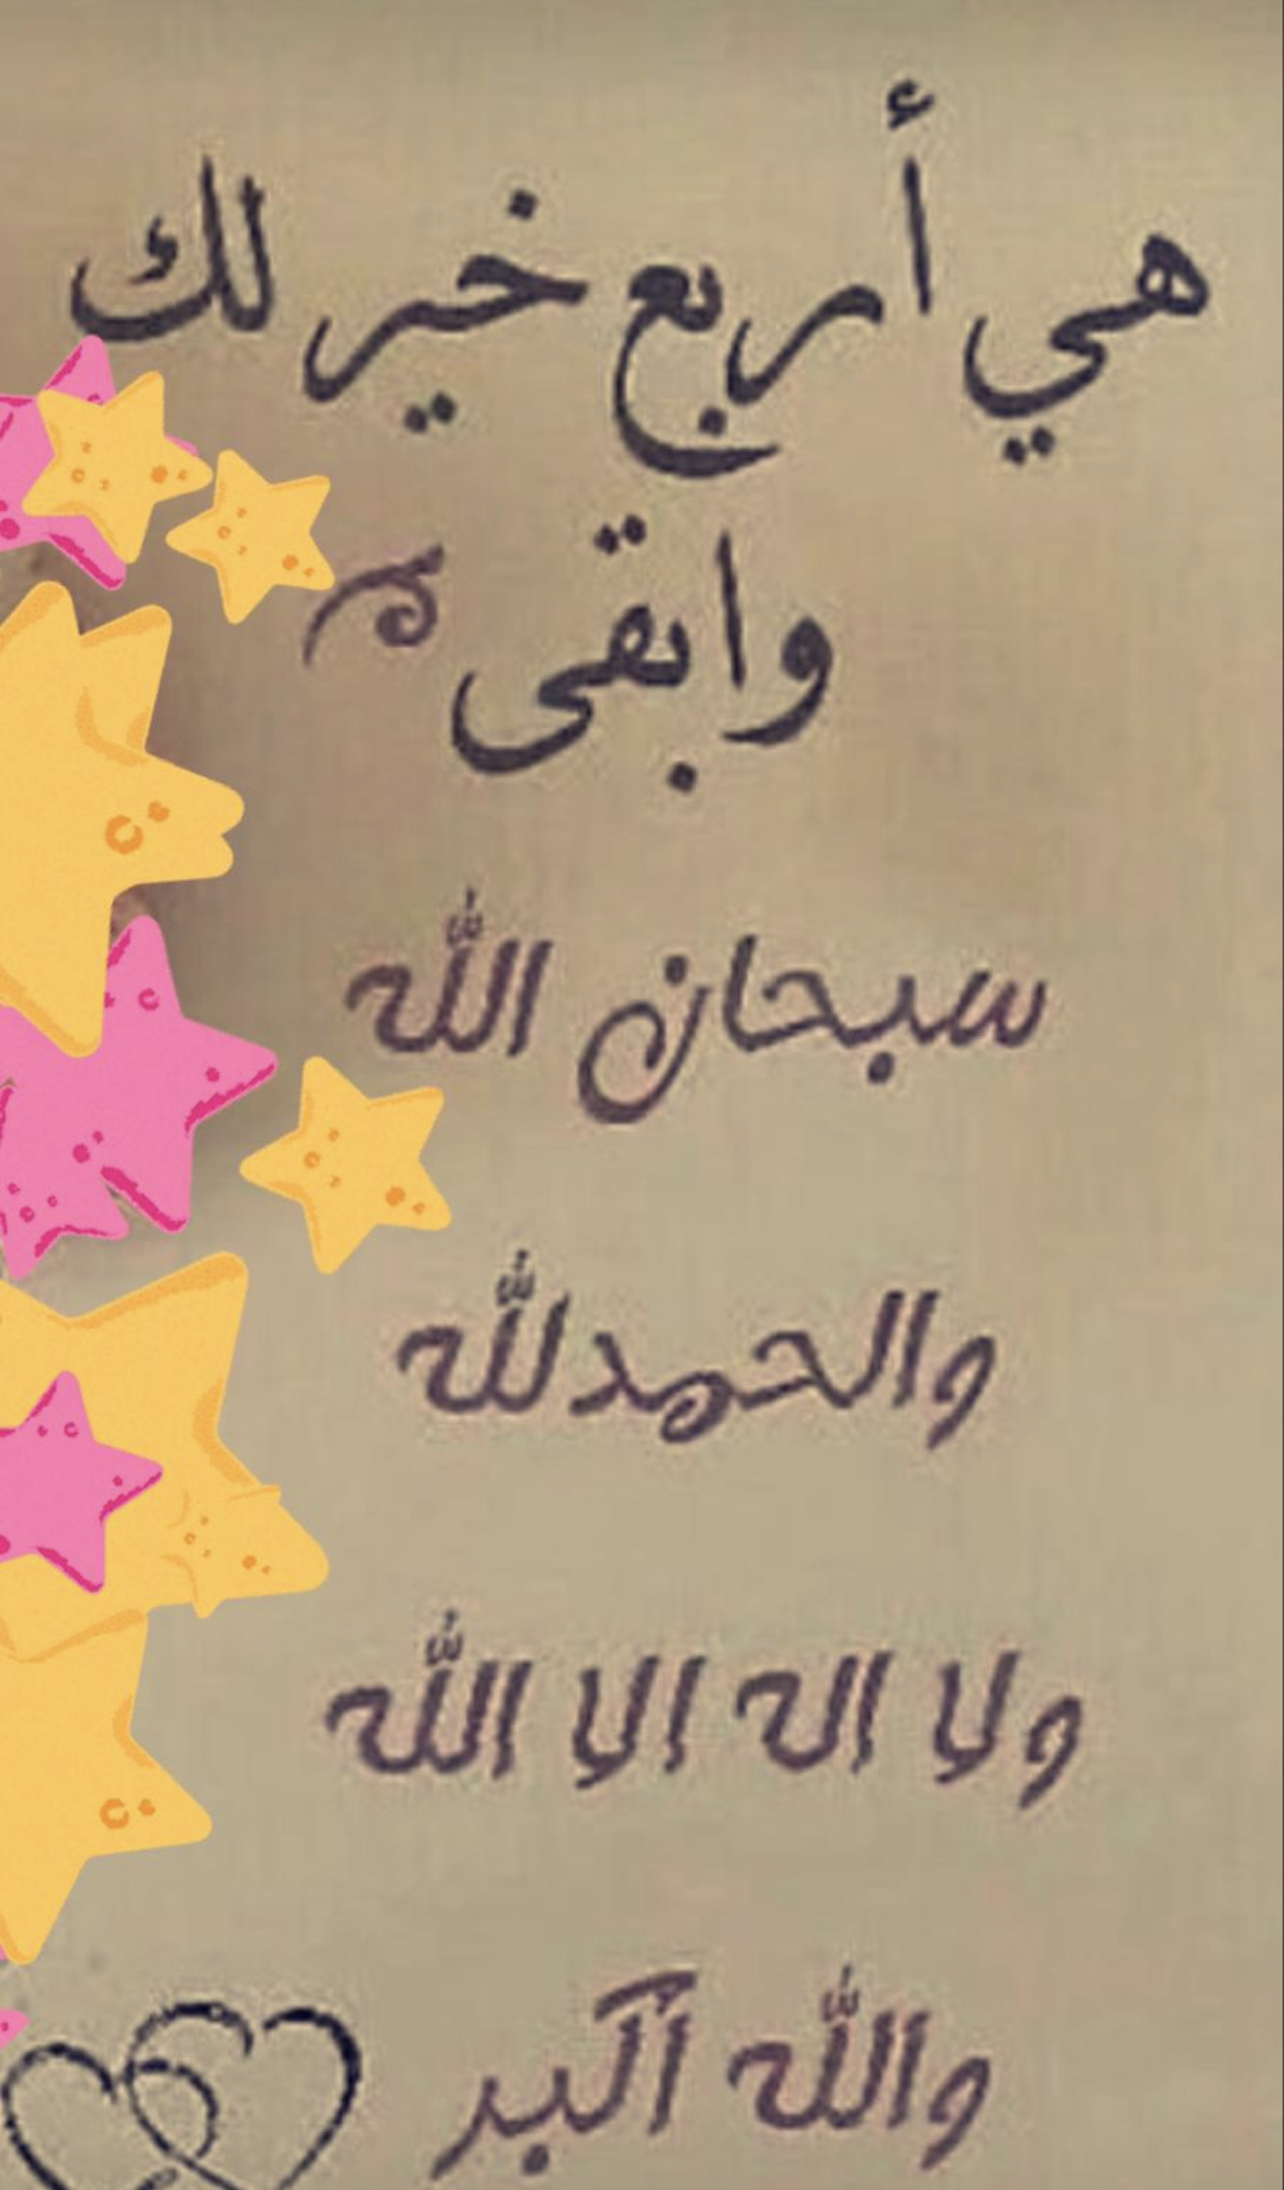 هي أربع خير لك
وابقى
سبحان الله
والحمدلله
ولا اله الا الله
والله أكبر